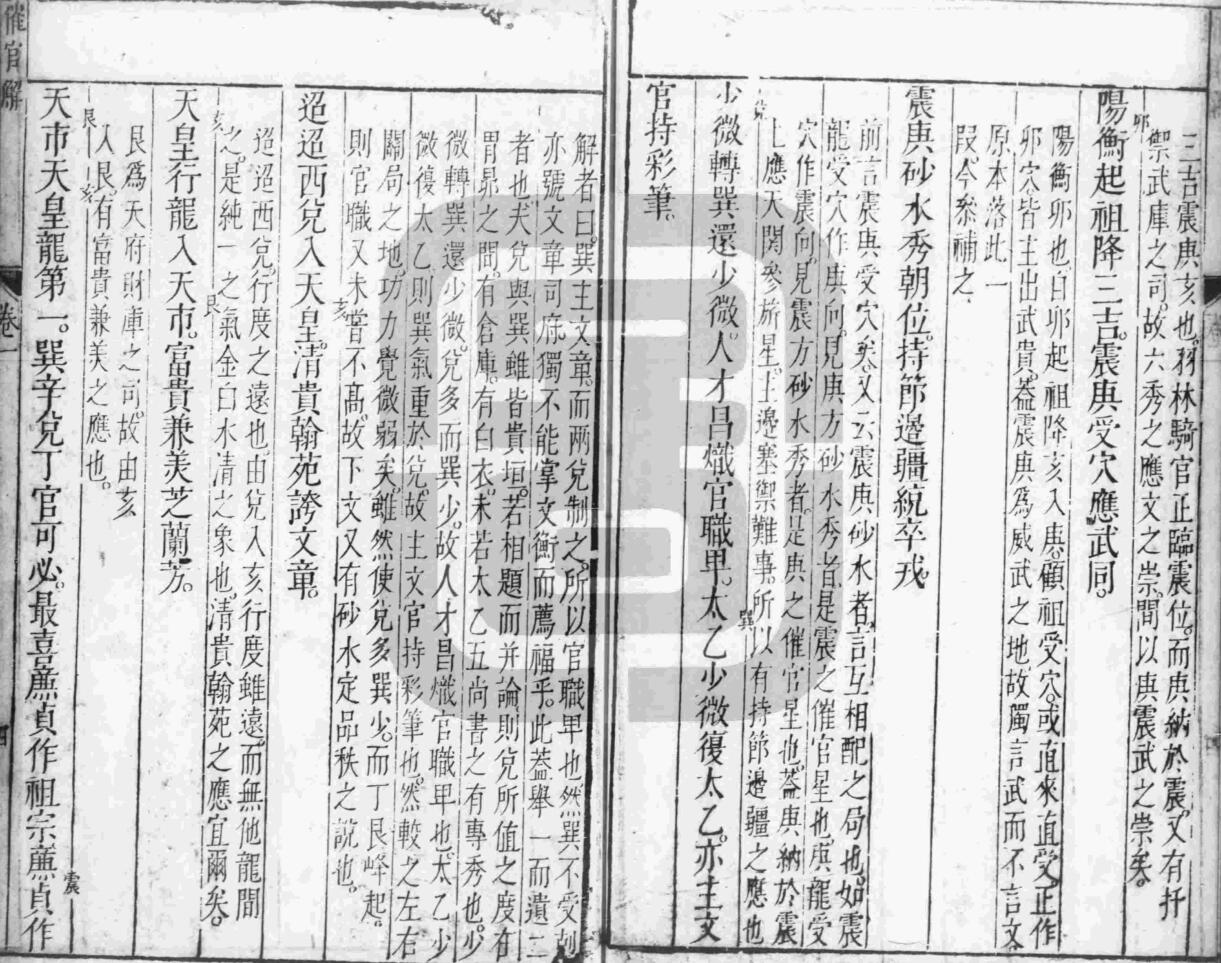 三吉震庚亥也。羽林騎官正臨震位。而庚納於震。又有扦
禦武庫之司。故六秀之應文之崇。間以庚震武之崇矣。
卯
陽衡起祖降三吉。震庚受穴應武同。
陽衡卯也。自卯起祖降亥入庚。顧祖受穴。或直來直受。正作
卯穴。皆主出武貴。葢震庚爲威武之地。故獨言武而不言文
原本落此一
叚。今叅補之
震庚砂水秀朝位。持節邊疆統卒戎。
前言震庚受穴矣。又云震庚砂水者。言互相配之局也。如震
龍受穴作庚向。見庚方砂水秀者。是震之催官星也。庚龍受
穴作震向。見震方砂水秀者。是庚之催官星也。葢庚納於震
上應天関參旂星。主邊塞禦難事。所以有持節邊疆之應也
兌
巽
少微轉巽還少微。人才昌熾官職卑。太乙少微復太乙。亦主文
官持彩筆。
解者曰。巽主文章。而两兌制之。所以官職卑也。然巽不受剋
亦號文章司府。獨不能掌文衡而薦福乎。此葢舉一而遺二
者也。夫兌與巽雖皆貴垣。若相題而并論。則兌所值之度有
胃昴之間。有倉庫。有白衣。未若太乙五尚書之有專秀也。少
微轉巽還少微。兌多而巽少。故人才昌熾官職卑也。太乙少
微復太乙。則巽氣重於兌。故主文官持彩筆也。然較之左右
關局之地。功力覺微弱矣。雖然使兌多巽少。而丁艮峰起。
則官職又未嘗不髙。故下文又有砂水定品秩之說也。
亥
迢迢西兌入天皇。清貴翰苑誇文章。
迢迢西兌。行度之遠也。由兌入亥行度雖遠。而無他龍間
之。是純一之氣金白水清之象也。清貴翰苑之應宜爾矣。
亥
艮
天皇行龍入天市。富貴兼美芝蘭芳。
艮爲天府財庫之司。故由亥
入艮有富貴兼美之應也。
艮
亥
震
天市天皇龍第一。巽辛兌丁官可必。最喜亷貞作祖宗亷貞作
催官解
卷一
四